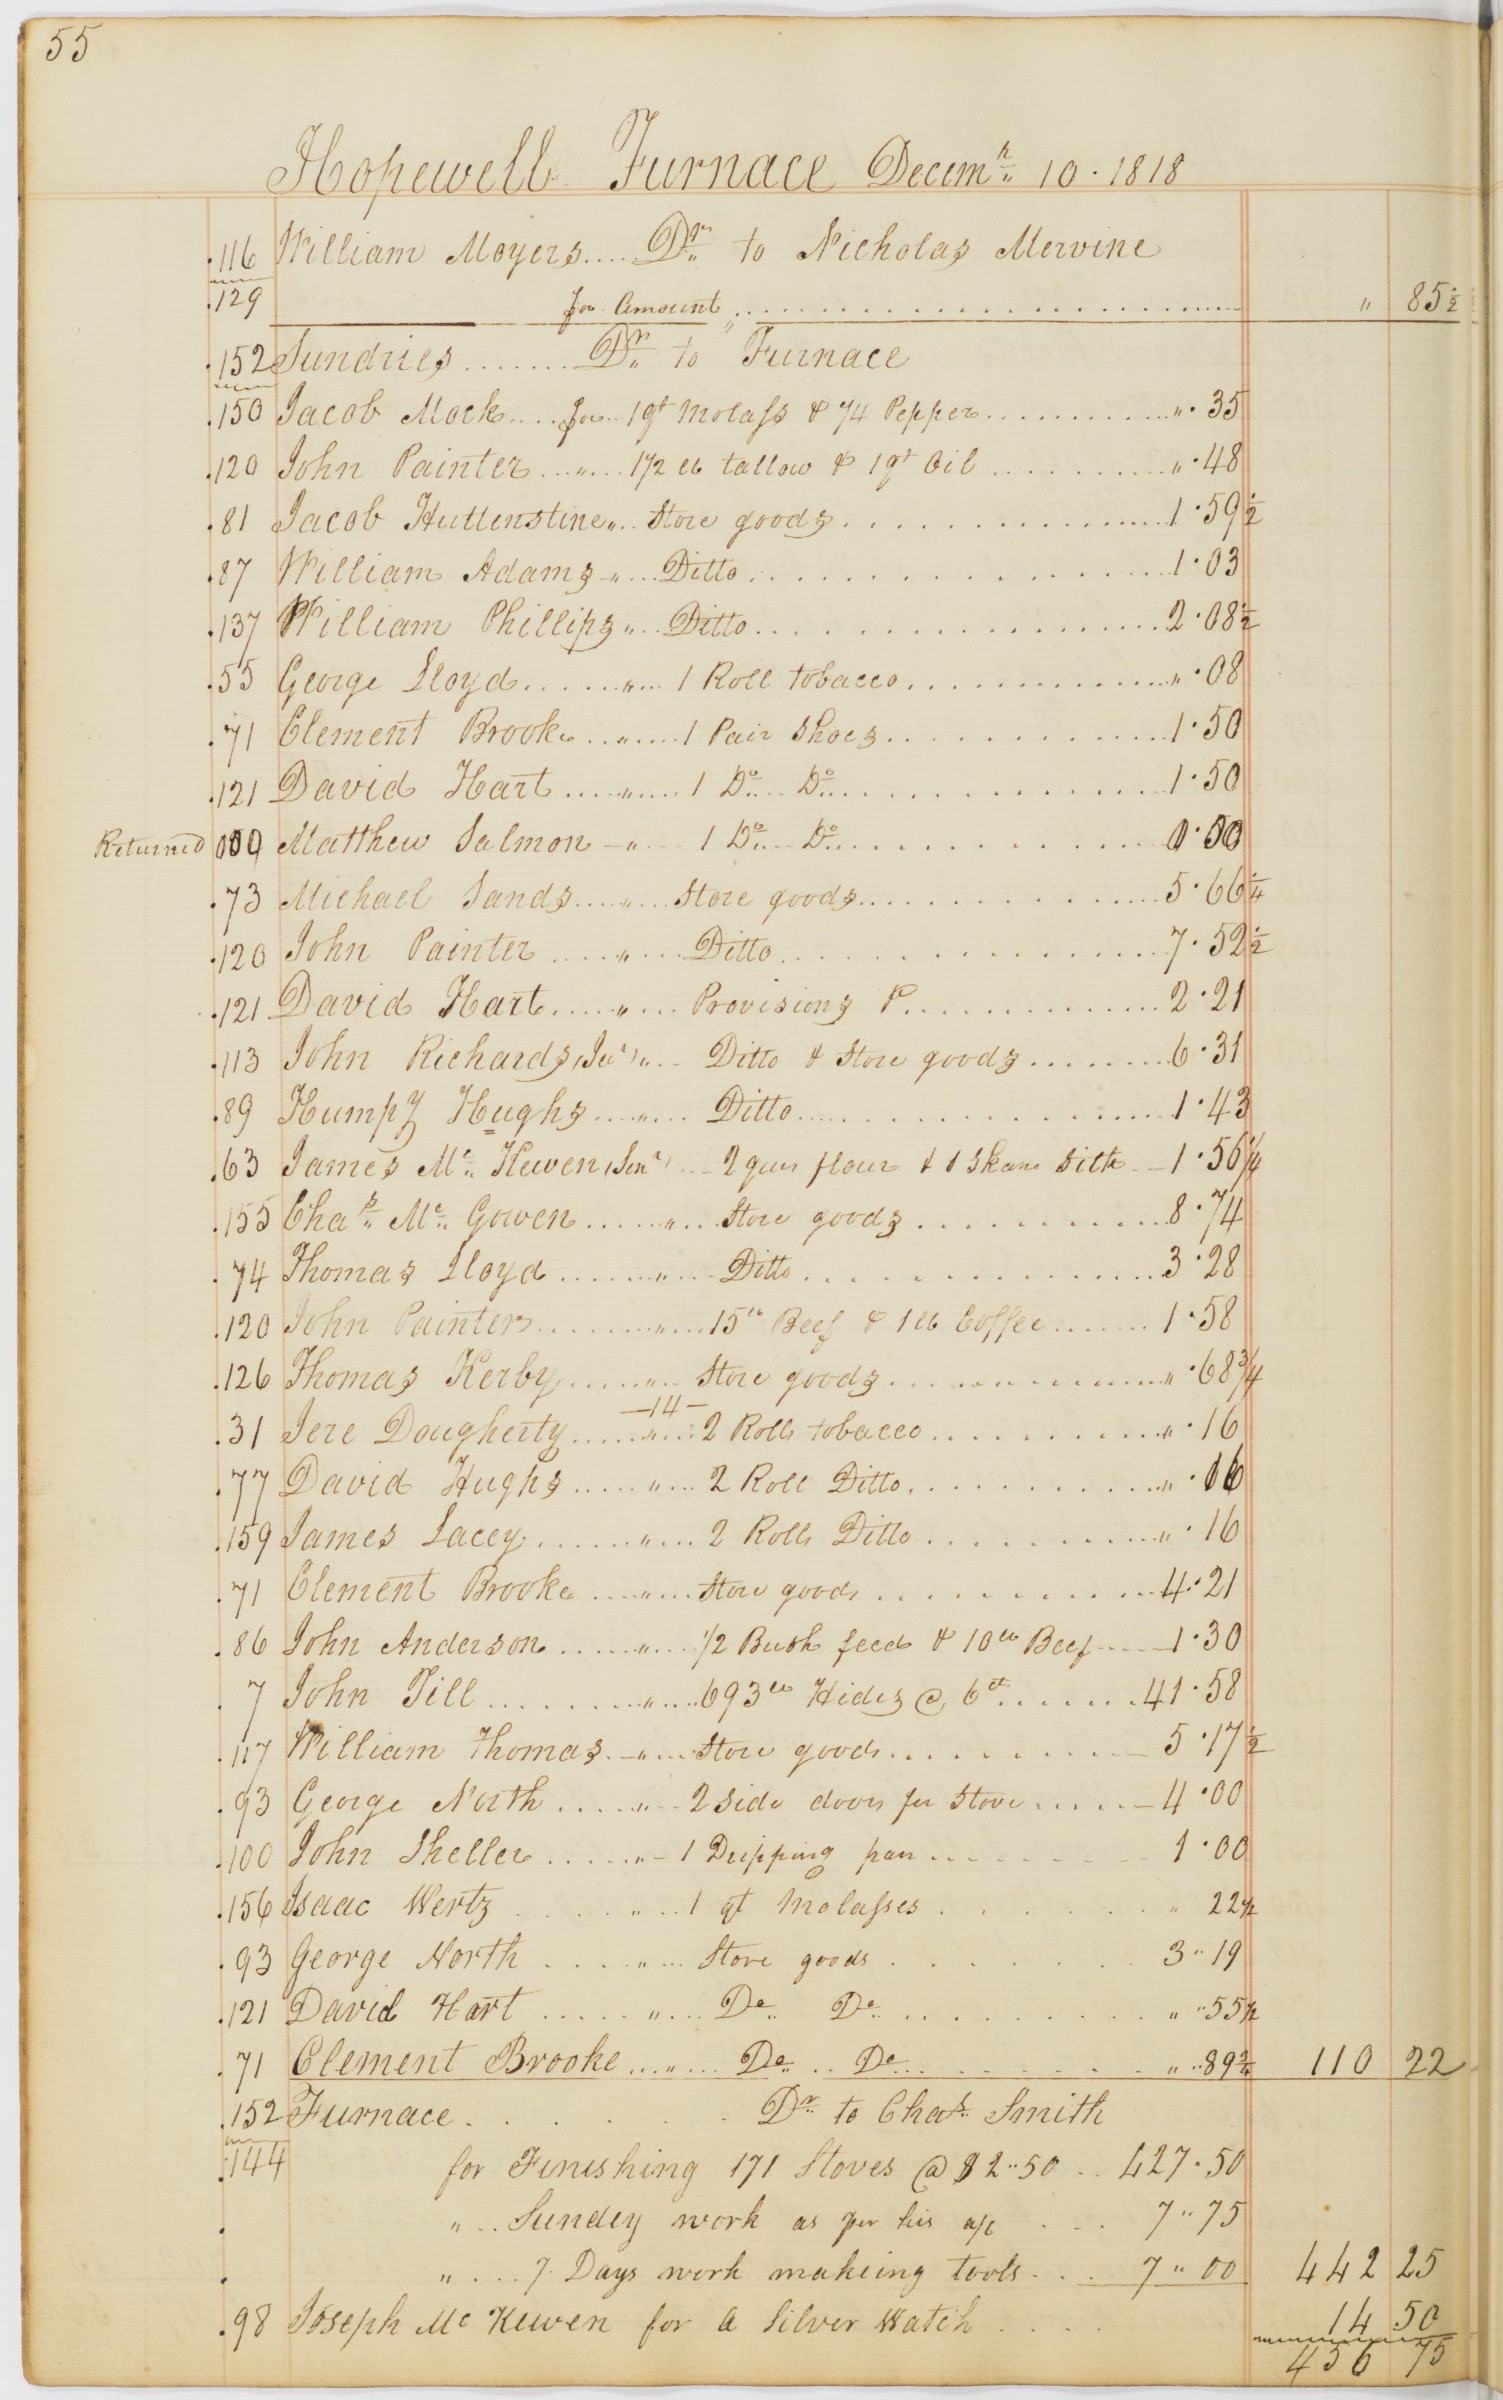 55
Hopewell Furnace Decemr 10 · 1818
116 William Moyers .... Dr to Nicholas Mervine
129 for Amount ........ " 85 1/2
152 Sundries ....... Dr to Furnace
150 Jacob Mock .... for 1 qt Molass & 1/4 Pepper ........ " · 35
120 John Painter ... " ... 1 1/2 lb tallow & 1 qt Oil ........ " · 48
81 Jacob Huttenstine " .. Store goods ........ 1 · 59 1/2
87 William Adams " ... Ditto ........ 1 · 03
137 William Phillips " ... Ditto ........ 2 · 08 1/2
55 George Lloyd ...... " ... 1 Roll tobacco ........ " · 08
71 Clement Brooke ... " .... 1 Pair Shoes ........ 1 · 50
121 David Hart .... " .... 1 Do Do ........ 1 · 50
Returned 000 Matthew Salmon " .... 1 Do Do ........ 0 · 00
73 Michael Sands .... " ... Store goods ........ 5 · 66 1/4
120 John Painter .... " .... Ditto ........ 7 · 52 1/2
121 David Hart .... " .... Provisions & ........ 2 · 21
113 John Richards, Jur " ... Ditto & Store goods ........ 6 · 31
89 Humpy Hughs .... " ... Ditto ........ 1 · 43
63 James Mc Kewen, Senr ... 2 qurs flour & 1 Skane Silk 1 · 56 1/4
155 Chas Mc Gowen ..... " ... Store goods ........ 8 · 74
74 Thomas Lloyd ..... " .... Ditto ........ 3 · 28
120 John Painter ...... " .... 15 lb Beef & 1 lb Coffee ...... 1 · 58
126 Thomas Kerby ..... " ... Store goods ........ " · 68 3/4
—14—
31 Jere Dougherty ..... " ... 2 Rolls tobacco ........ " · 16
77 David Hughs ..... " .... 2 Roll Ditto ........ " · 16
159 James Lacey ...... " .... 2 Rolls Ditto ........ " · 16
71 Clement Brooke .... " .... Store goods ........ 4 · 21
86 John Anderson ..... " .... 1/2 Bush feed & 10 lb Beef .... 1 · 30
7 John Till ....... " .... 693 lb Hides @ 6 ct ....... 41 · 58
117 William Thomas .. " .... Store goods ........ 5 · 17 1/2
93 George North ..... " ... 2 Side doors for Stove ..... 4 · 00
100 John Sheller ..... " .. 1 Dripping pan ........ 1 · 00
156 Isaac Wertz ..... " .... 1 qt Molasses ........ " 22 1/2
93 George North ..... " .... Store goods ........ 3 " 19
121 David Hart ..... " .... Do Do ........ " " 55 1/2
71 Clement Brooke ... " .... Do .. Do ........ " " 89 3/4 110 22
152 Furnace ....... Dr to Chas Smith
144 for Finishing 171 Stoves @ $2"50 .. 427 · 50
" .. Sundry work as per his a/c .... 7 " 75
" .... 7 Days work makeing tools .... 7 " 00 442 25
98 Joseph Mc Kewen for a Silver Watch .... 14 50
456 75